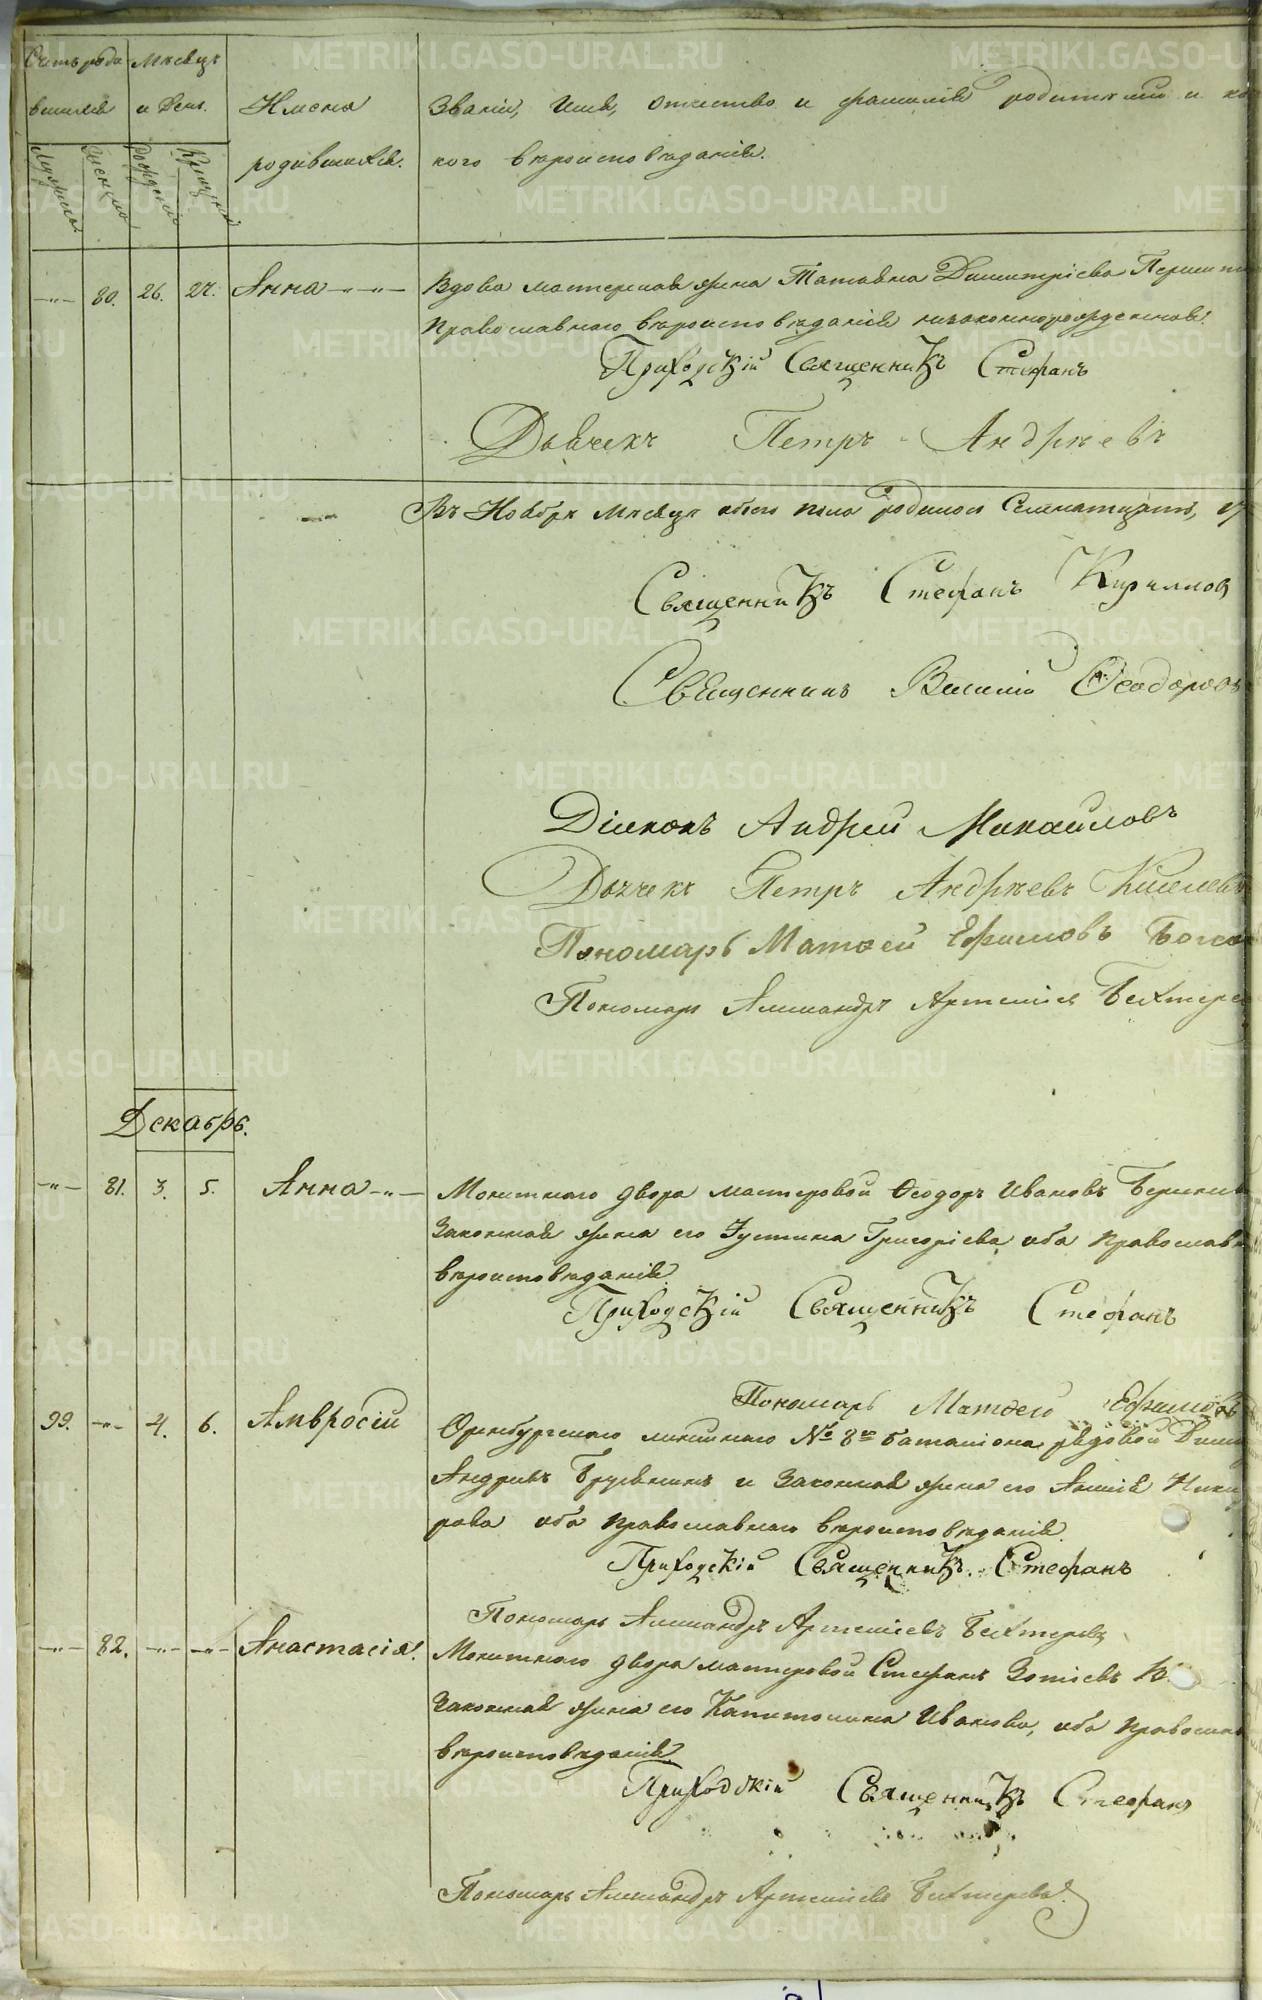 Счетъ роди Мѣсяцъ
вшихся и День. Имена Званіе, имя, отчество и фамилія родителей и ка
родившихся. кого вѣроисповѣданія.
Мужеска Женска Рожденія Крещенія
80. 26. 27. Анна Вдова мастерская жена Татьяна Димитріева
Православнаго вѣроисповѣданія незаконнорожденная.
Приходскій Священникъ Стефанъ
Дьячекъ Петръ Андреевъ
Въ Ноябрѣ Мѣсяцѣ обоего пола родилось Семнатцать, 17
Священникъ Стефанъ Кириллов
Священникъ Василій Ѳеодоровъ
Діаконъ Андрей Михайловъ
Дьячекъ Петръ Андрѣевъ Киселевъ
Пономарь Матѳей Ефимовъ
Пономарь Александръ Артеміев Бехтере
Декабрь.
81. 3. 5. Анна Монетнаго двора мастеровой Ѳеодоръ Ивановъ
Законная жена его Іустина Григоріева, оба Православн
вѣроисповѣданія.
Приходскій Священникъ Стефанъ
Пономарь Матѳей Ефимовъ
99. 4. 6. Амвросій Оренбургскаго линейнаго № 8го баталіона рядовой Дими
Андреевъ и Законная жена его
рова оба Православнаго вѣроисповѣданія.
Приходскій Священникъ Стефанъ
Пономарь Александръ Артеміевъ Бехтерев
82. Анастасія. Монетнаго двора мастеровой Стефанъ Зотіевъ
Законная жена его Капитолина Иванова, оба Православ
вѣроисповѣданія.
Приходскій Священникъ Стефанъ
Пономарь Александръ Артеміевъ Бехтеревъ.
METRIKI.GASO-URAL.RU